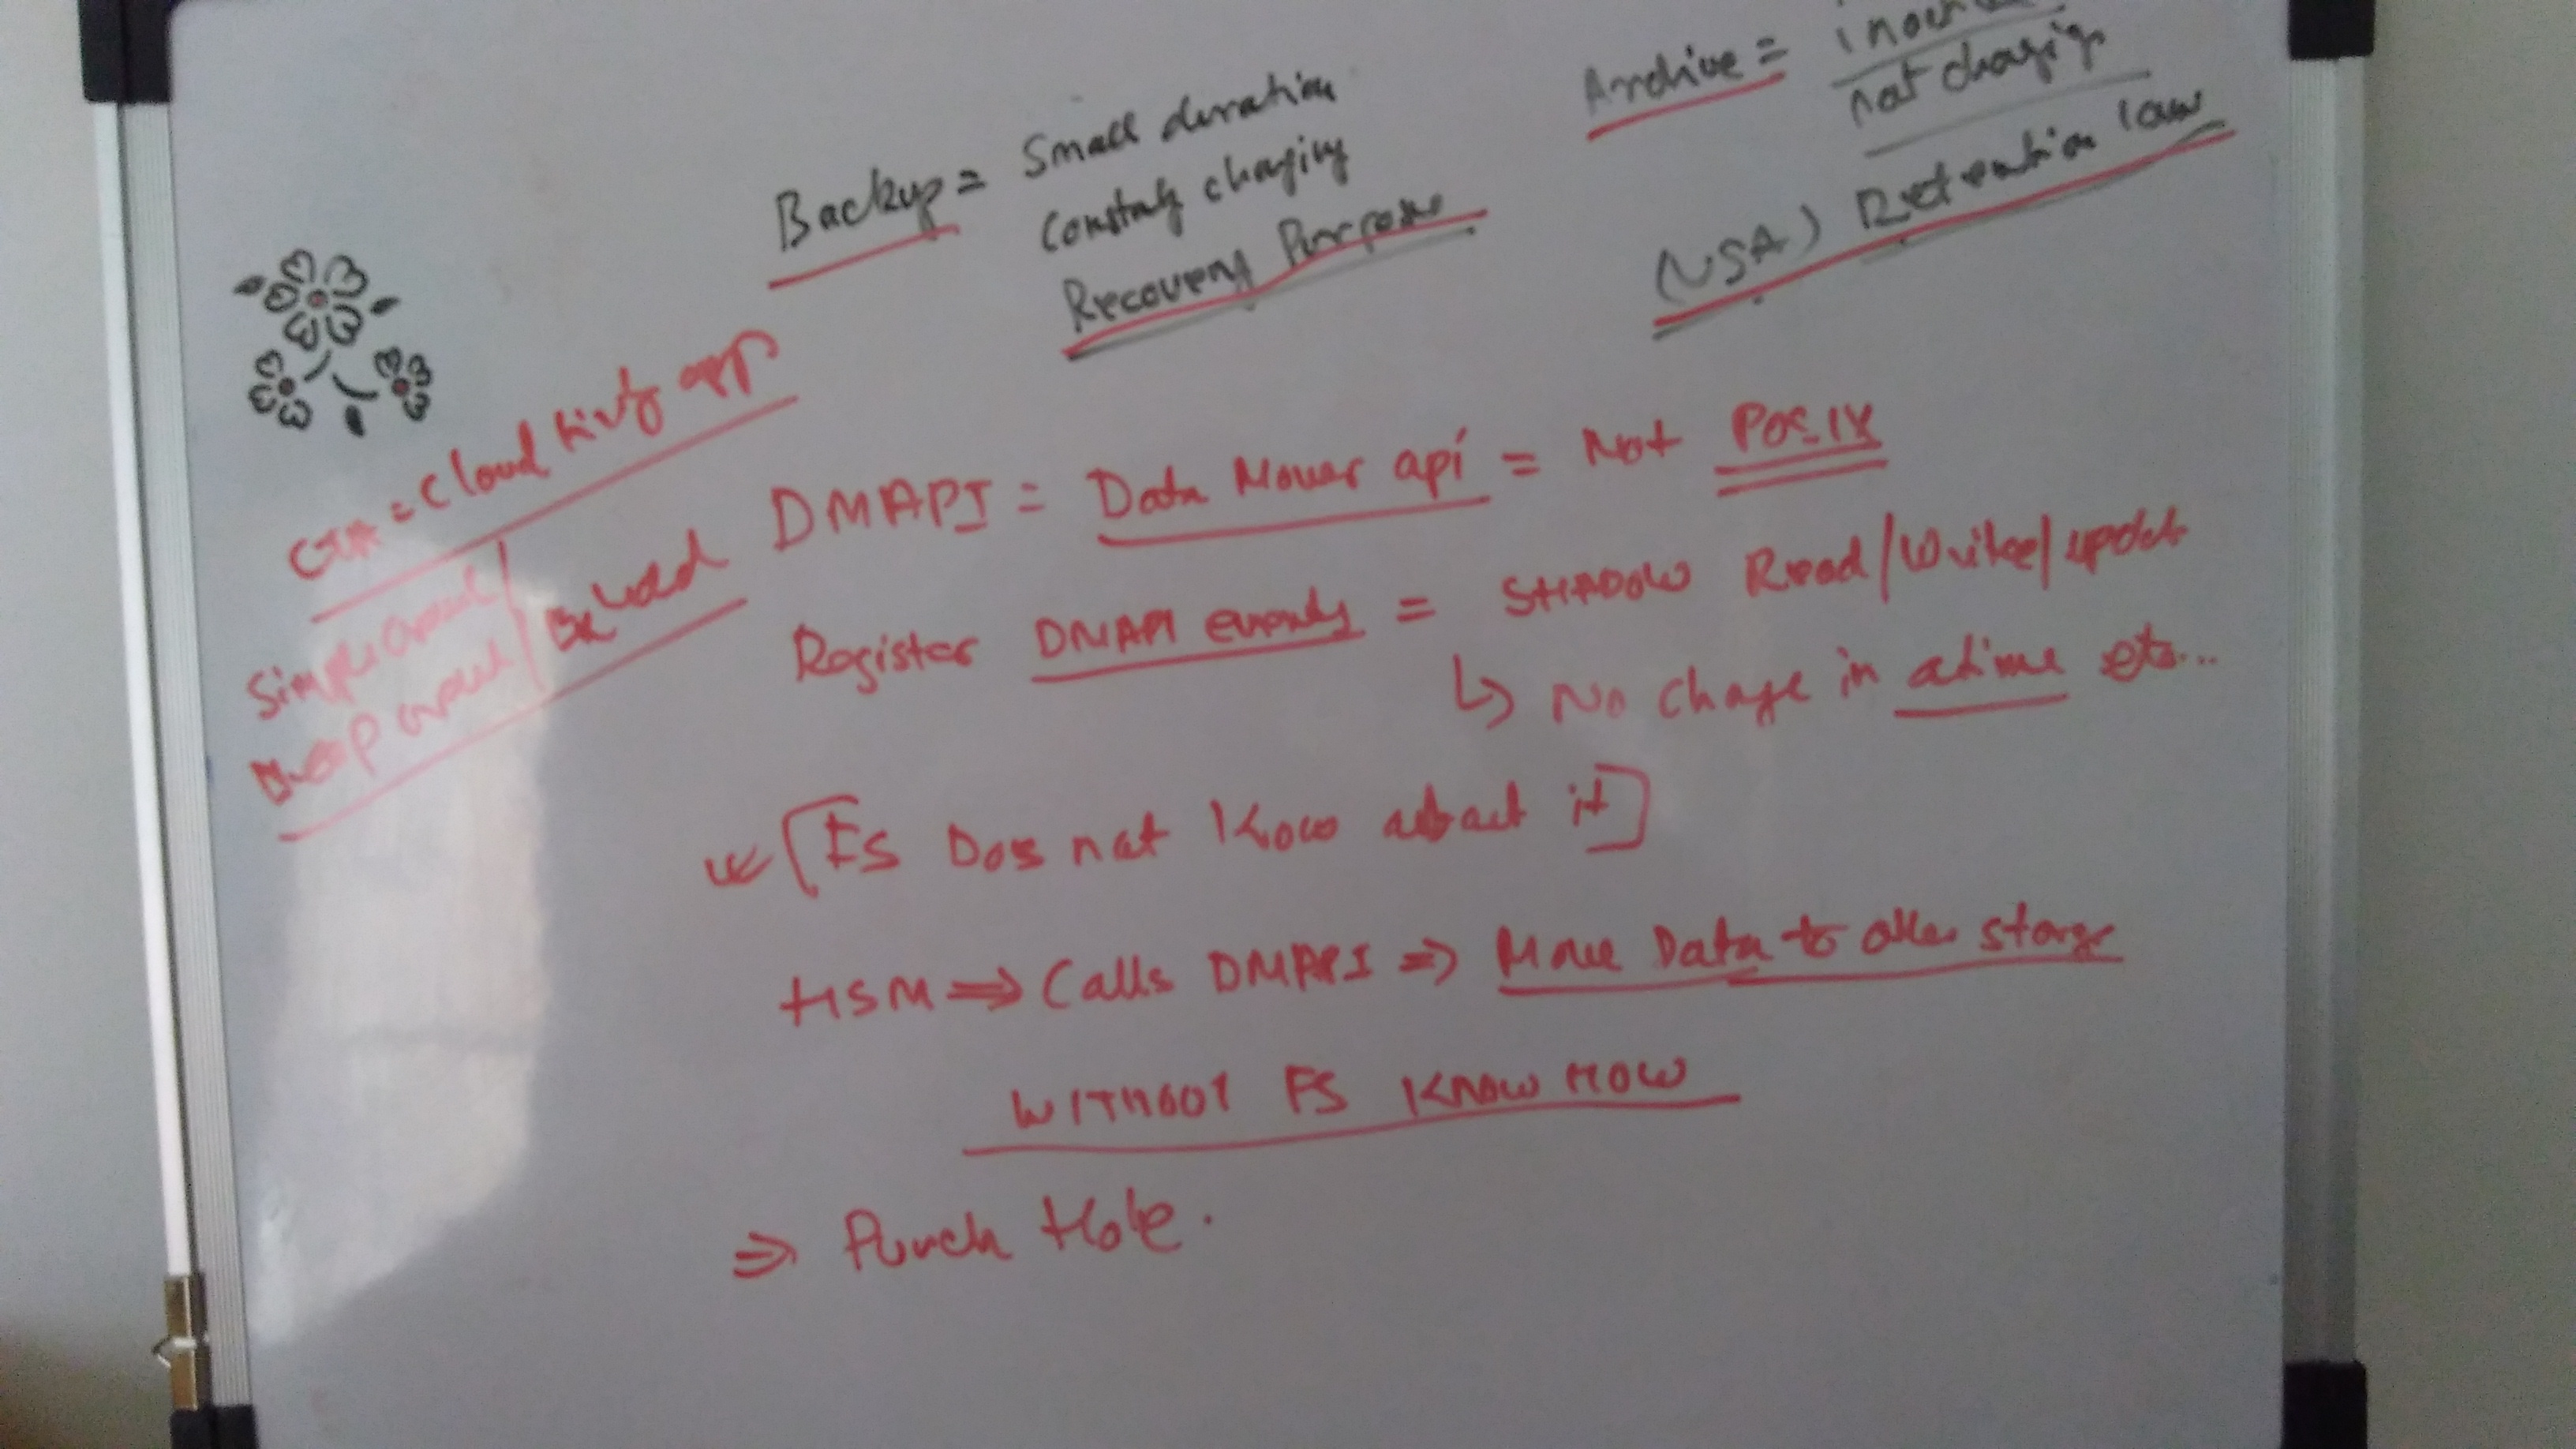 Backup = Small duration
Constaly changing
Recovery Purpose
Archive =
not changing
(USA) Retention law
= Cloud app
DMAPI = Data Mover api = Not Posix
Register DMAPI events = SHADOW Read/Write/update
↳ No change in atime etc...
[FS Does not Know about it]
HSM ⇒ Calls DMAPI ⇒ Move Data to other storage
WITHOUT FS KNOW HOW
⇒ Punch Hole.